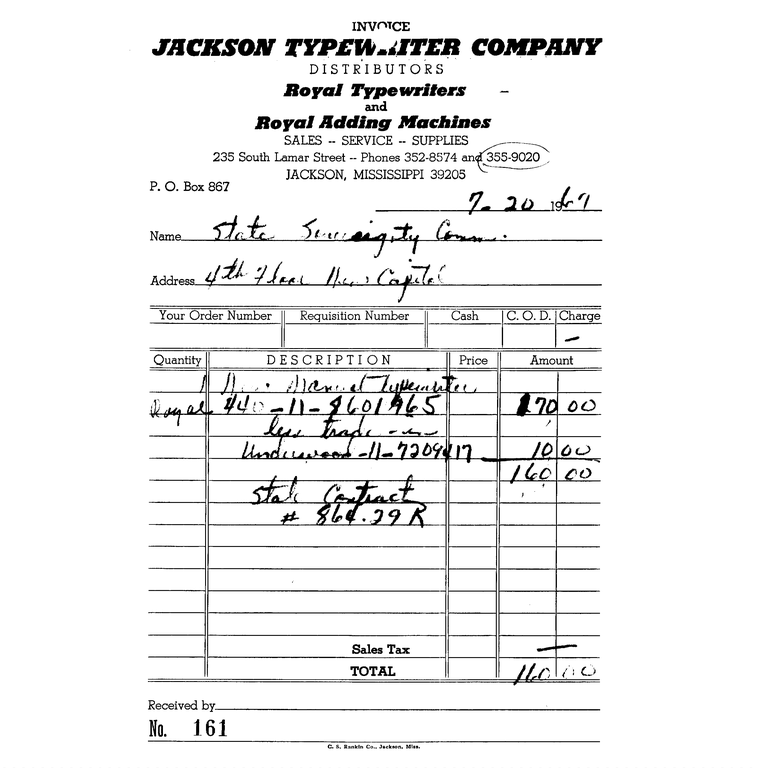 INVOICE
JACKSON TYPEWRITER COMPANY
DISTRIBUTORS
Royal Typewriters
and
Royal Adding Machines
SALES -- SERVICE -- SUPPLIES
235 South Lamar Street -- Phones 352-8574 and 355-9020
JACKSON, MISSISSIPPI 39205
P. O. Box 867
7-20 1967
Name State Sovereignty Comm.
Address 4th Floor New Capitol
Your Order Number Requisition Number Cash C. O. D. Charge
—
Quantity DESCRIPTION Price Amount
1 New Manual Typewriter
Royal 440-11-8601965 170 00
less trade-in
Underwood-11-7209417 10 00
160 00
State Contract
# 864.29 R
Sales Tax —
TOTAL 160 00
Received by
No. 161
C. S. Rankin Co., Jackson, Miss.